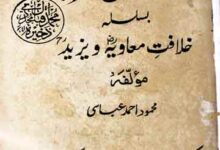 بسلسلہ
خلافتِ معاویہؓ و یزیدؒ
مؤلفہ
محمود احمد عباسی